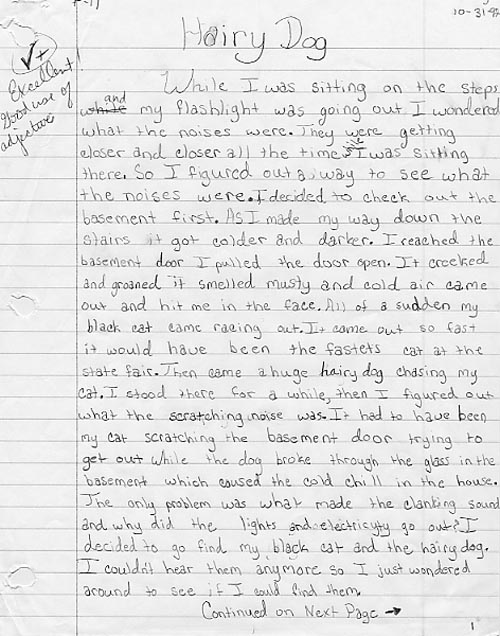 10-31-97
Hairy Dog
✓+
Excellent
Good use of
adjectives
While I was sitting on the steps
while and my flashlight was going out I wondered
what the noises were. They were getting
closer and closer all the time I was sitting
there. So I figured out a way to see what
the noises were. I decided to check out the
basement first. As I made my way down the
stairs it got colder and darker. I reached the
basement door I pulled the door open. It creeked
and groaned it smelled musty and cold air came
out and hit me in the face. All of a sudden my
black cat came racing out. It came out so fast
it would have been the fastets cat at the
state fair. Then came a huge hairy dog chasing my
cat. I stood there for a while, then I figured out
what the scratching noise was. It had to have been
my cat scratching the basement door trying to
get out while the dog broke through the glass in the
basement which caused the cold chill in the house.
The only problem was what made the clanking sound
and why did the lights and electricyty go out? I
decided to go find my black cat and the hairy dog.
I couldn't hear them anymore so I just wondered
around to see if I could find them.
Continued on Next Page →
1